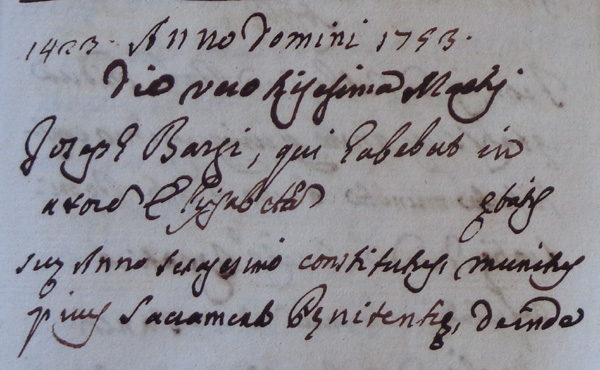 1423. Anno Domini 1753.
Die vero Trigesima Martij
Joseph Barsi, qui habebat in
uxorē Elisabethā ętatis
suę Anno sexagesimo constitutus, munitus
prius Sacramento Pęnitentię, deinde